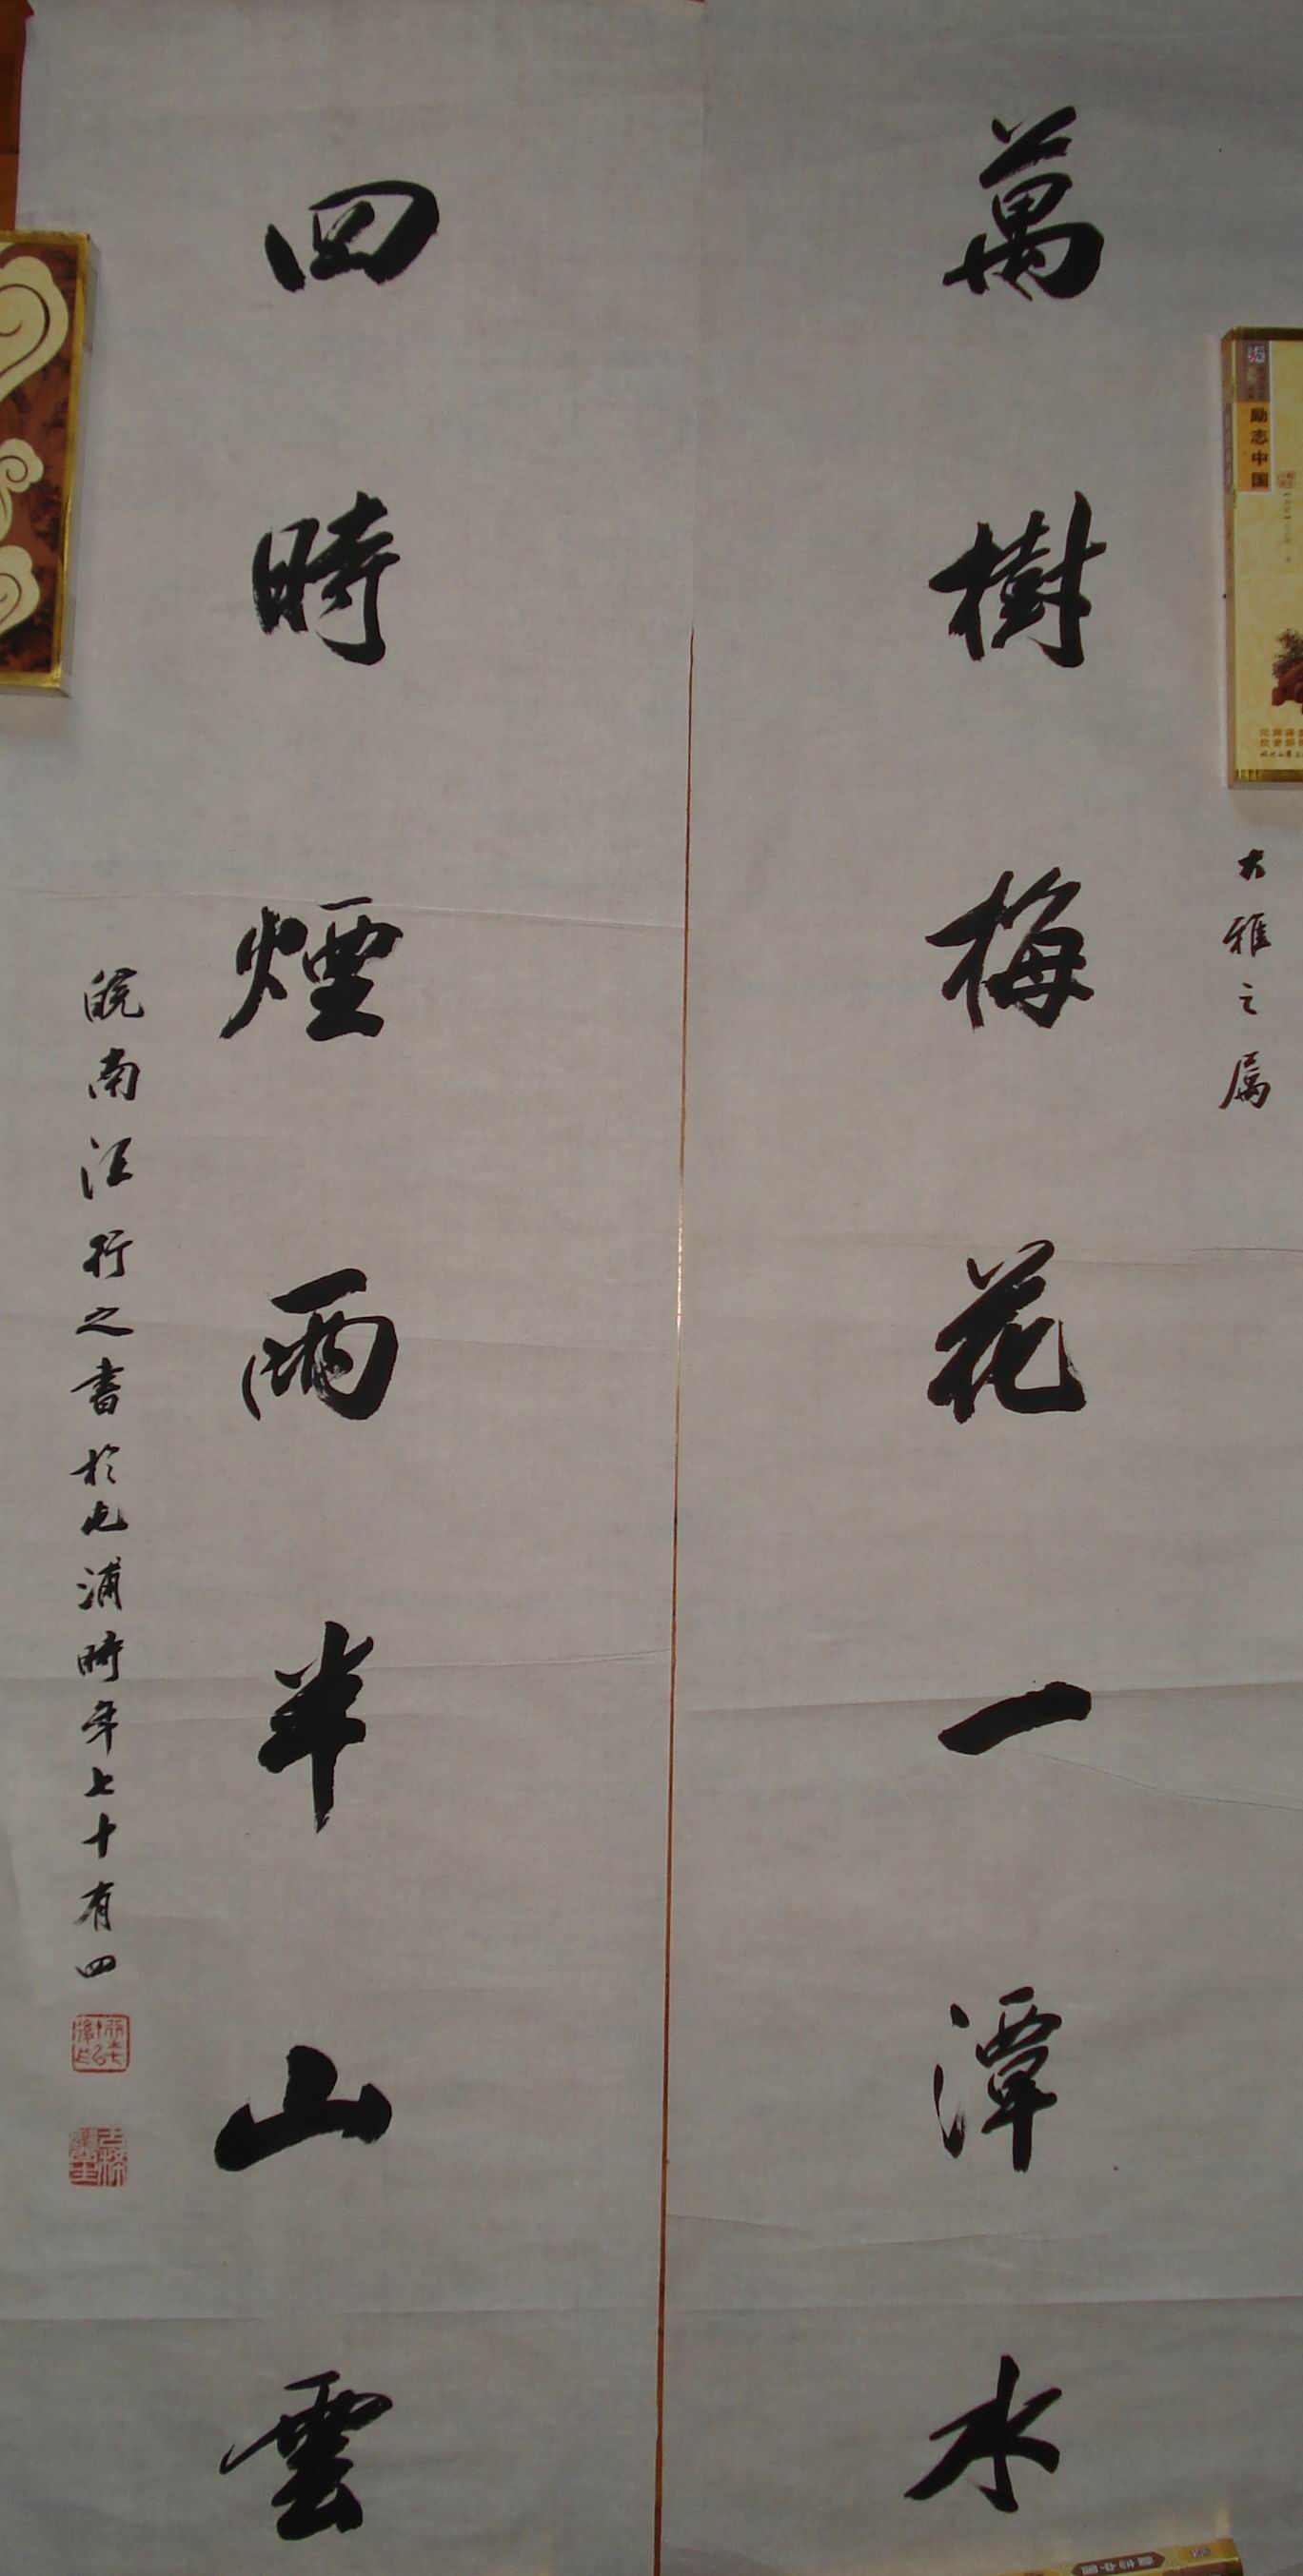 大雅之属
萬樹梅花一潭水
四時煙雨半山雲
皖南汪行之書於屯浦時年七十有四
励志中国